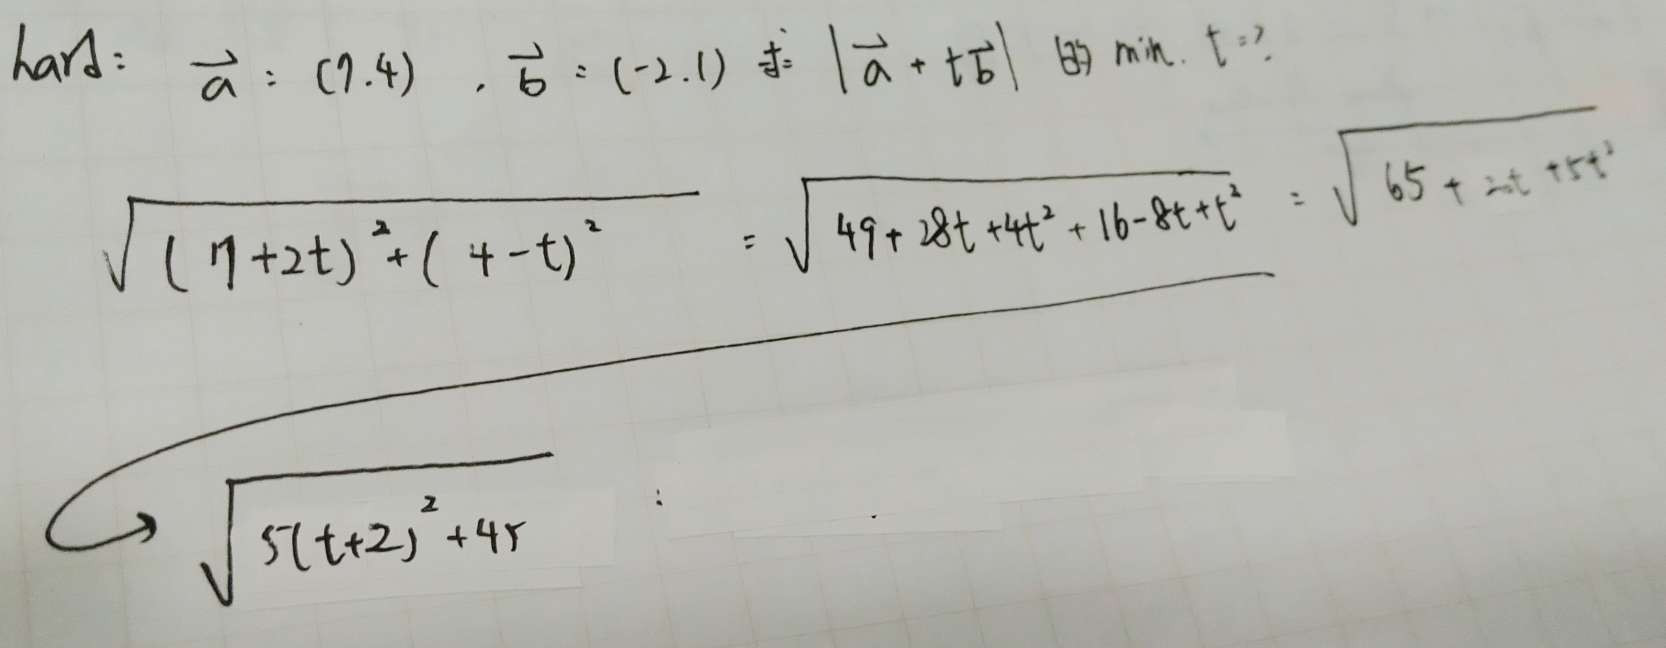 hard: \vec{a} = (7.4) , \vec{b} = (-2.1) 求 |\vec{a} + t\vec{b}| 的 min. t=?
√((7+2t)²+(4-t)²) = √(49+28t+4t²+16-8t+t²) = √(65+20t+5t²)
√(5(t+2)²+45) :